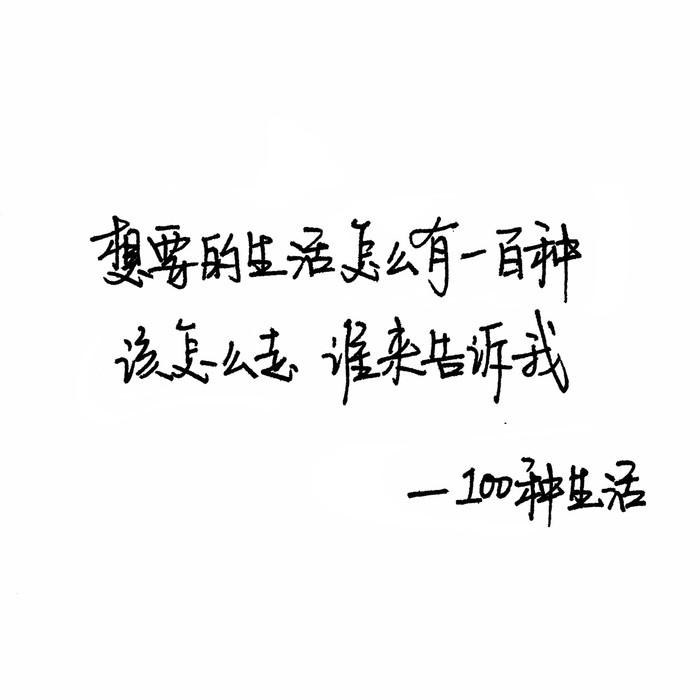 想要的生活怎么有一百种
该怎么走 谁来告诉我
—100种生活